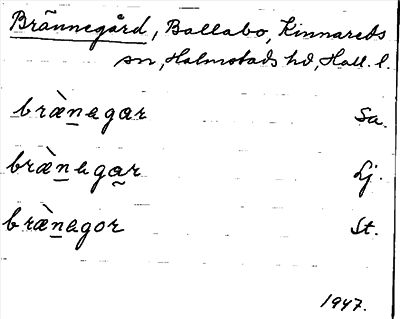 Brännegård, Ballabo, Kinnareds
sn, Halmstads hd, Hall. l.
bræ̀negar Sa.
bræ̀negar Lj.
bræ̀negor St.
1947.